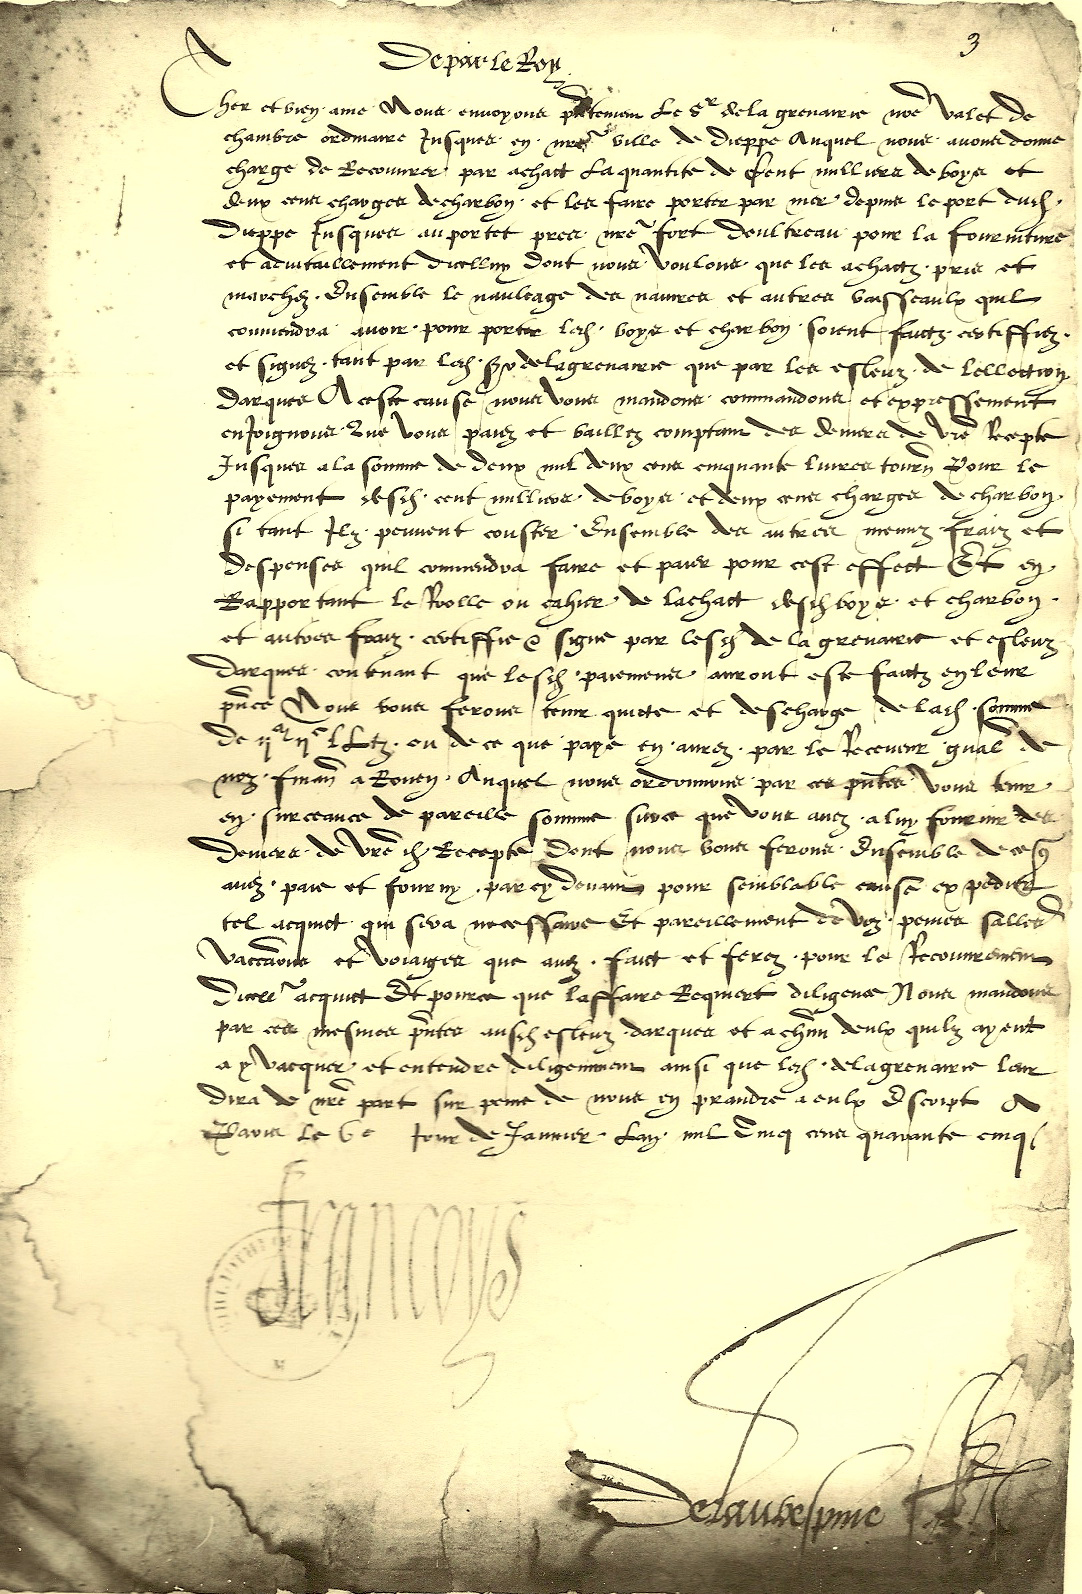 3
De par le Roy
Cher et bien ame Nous envoyons pntement le Sr de la grenairie nre valet de
chambre ordinaire Jusques en nre ville de Dieppe Auquel nous avons donne
charge de Recouvrer par achact la quantite de Cent milliers de boys et
deux cens charges de charbon et les faire porter par mer depuis le port dud
Dieppe Jusques au portet pres nre fort doultreau pour la fourniture
et advitaillement dicelluy dont nous voulons que les achactz pris et
marchez Ensemble le nauleage des navires et autres vaisseaulx quil
conviendra avoir pour porter lesd boys et charbon soient faictz certiffiez
et signez tant par led Sr de la grenairie que par les esleuz de lellection
darques A ceste cause nous vous mandons commandons et expressement
enjoignons Que vous paiez et baillez comptant des deniers de vre Recepte
Jusques a la somme de deux mil deux cens cinquante livres tourn Pour le
payement desd cent milliers de boys et deux cens charges de charbon
si tant Ilz peuvent couster Ensemble des autres menuz fraiz et
despenses quil conviendra faire et paier pour cest effect Et en
Rapportant le Roolle ou cahier de lachact desd boys et charbon
et autres fraiz certiffie et signe par lesd de la grenairie et esleuz
darques contenant que lesd paiemens auront este faictz en leur
pnce Nous vous ferons tenir quicte et descharge de lad somme
de ijm ijc l Ltz ou de ce que paye en aurez par le Receveur gnal de
noz finan a Rouen Auquel nous ordonnons par ces pntes vous tenir
en surceance de pareille somme sur ce que vous avez a luy fournir des
deniers de vre d Recepte Dont nous vous ferons Ensemble de ce q
avez paie et fourny par cy devant pour semblable cause expedier
tel acquict qui sera necessaire Et pareillement de voz peines sallres
vaccaons et voiaiges que avez faict et ferez pour le Recouvrement
dicell acquict Et pource que laffaire Requiert diligence Nous mandons
par ces mesmes pntes ausd esleuz darques et a chun deulx quilz ayent
a y vacquer et entendre diligemment ainsi que led de la grenairie leur
dira de nre part sur peine de nous en prandre a eulx Escript A
Paris le 6e Jour de Janvier Lan mil Cinq cens quarante cinq
Francoys
Delaubespine